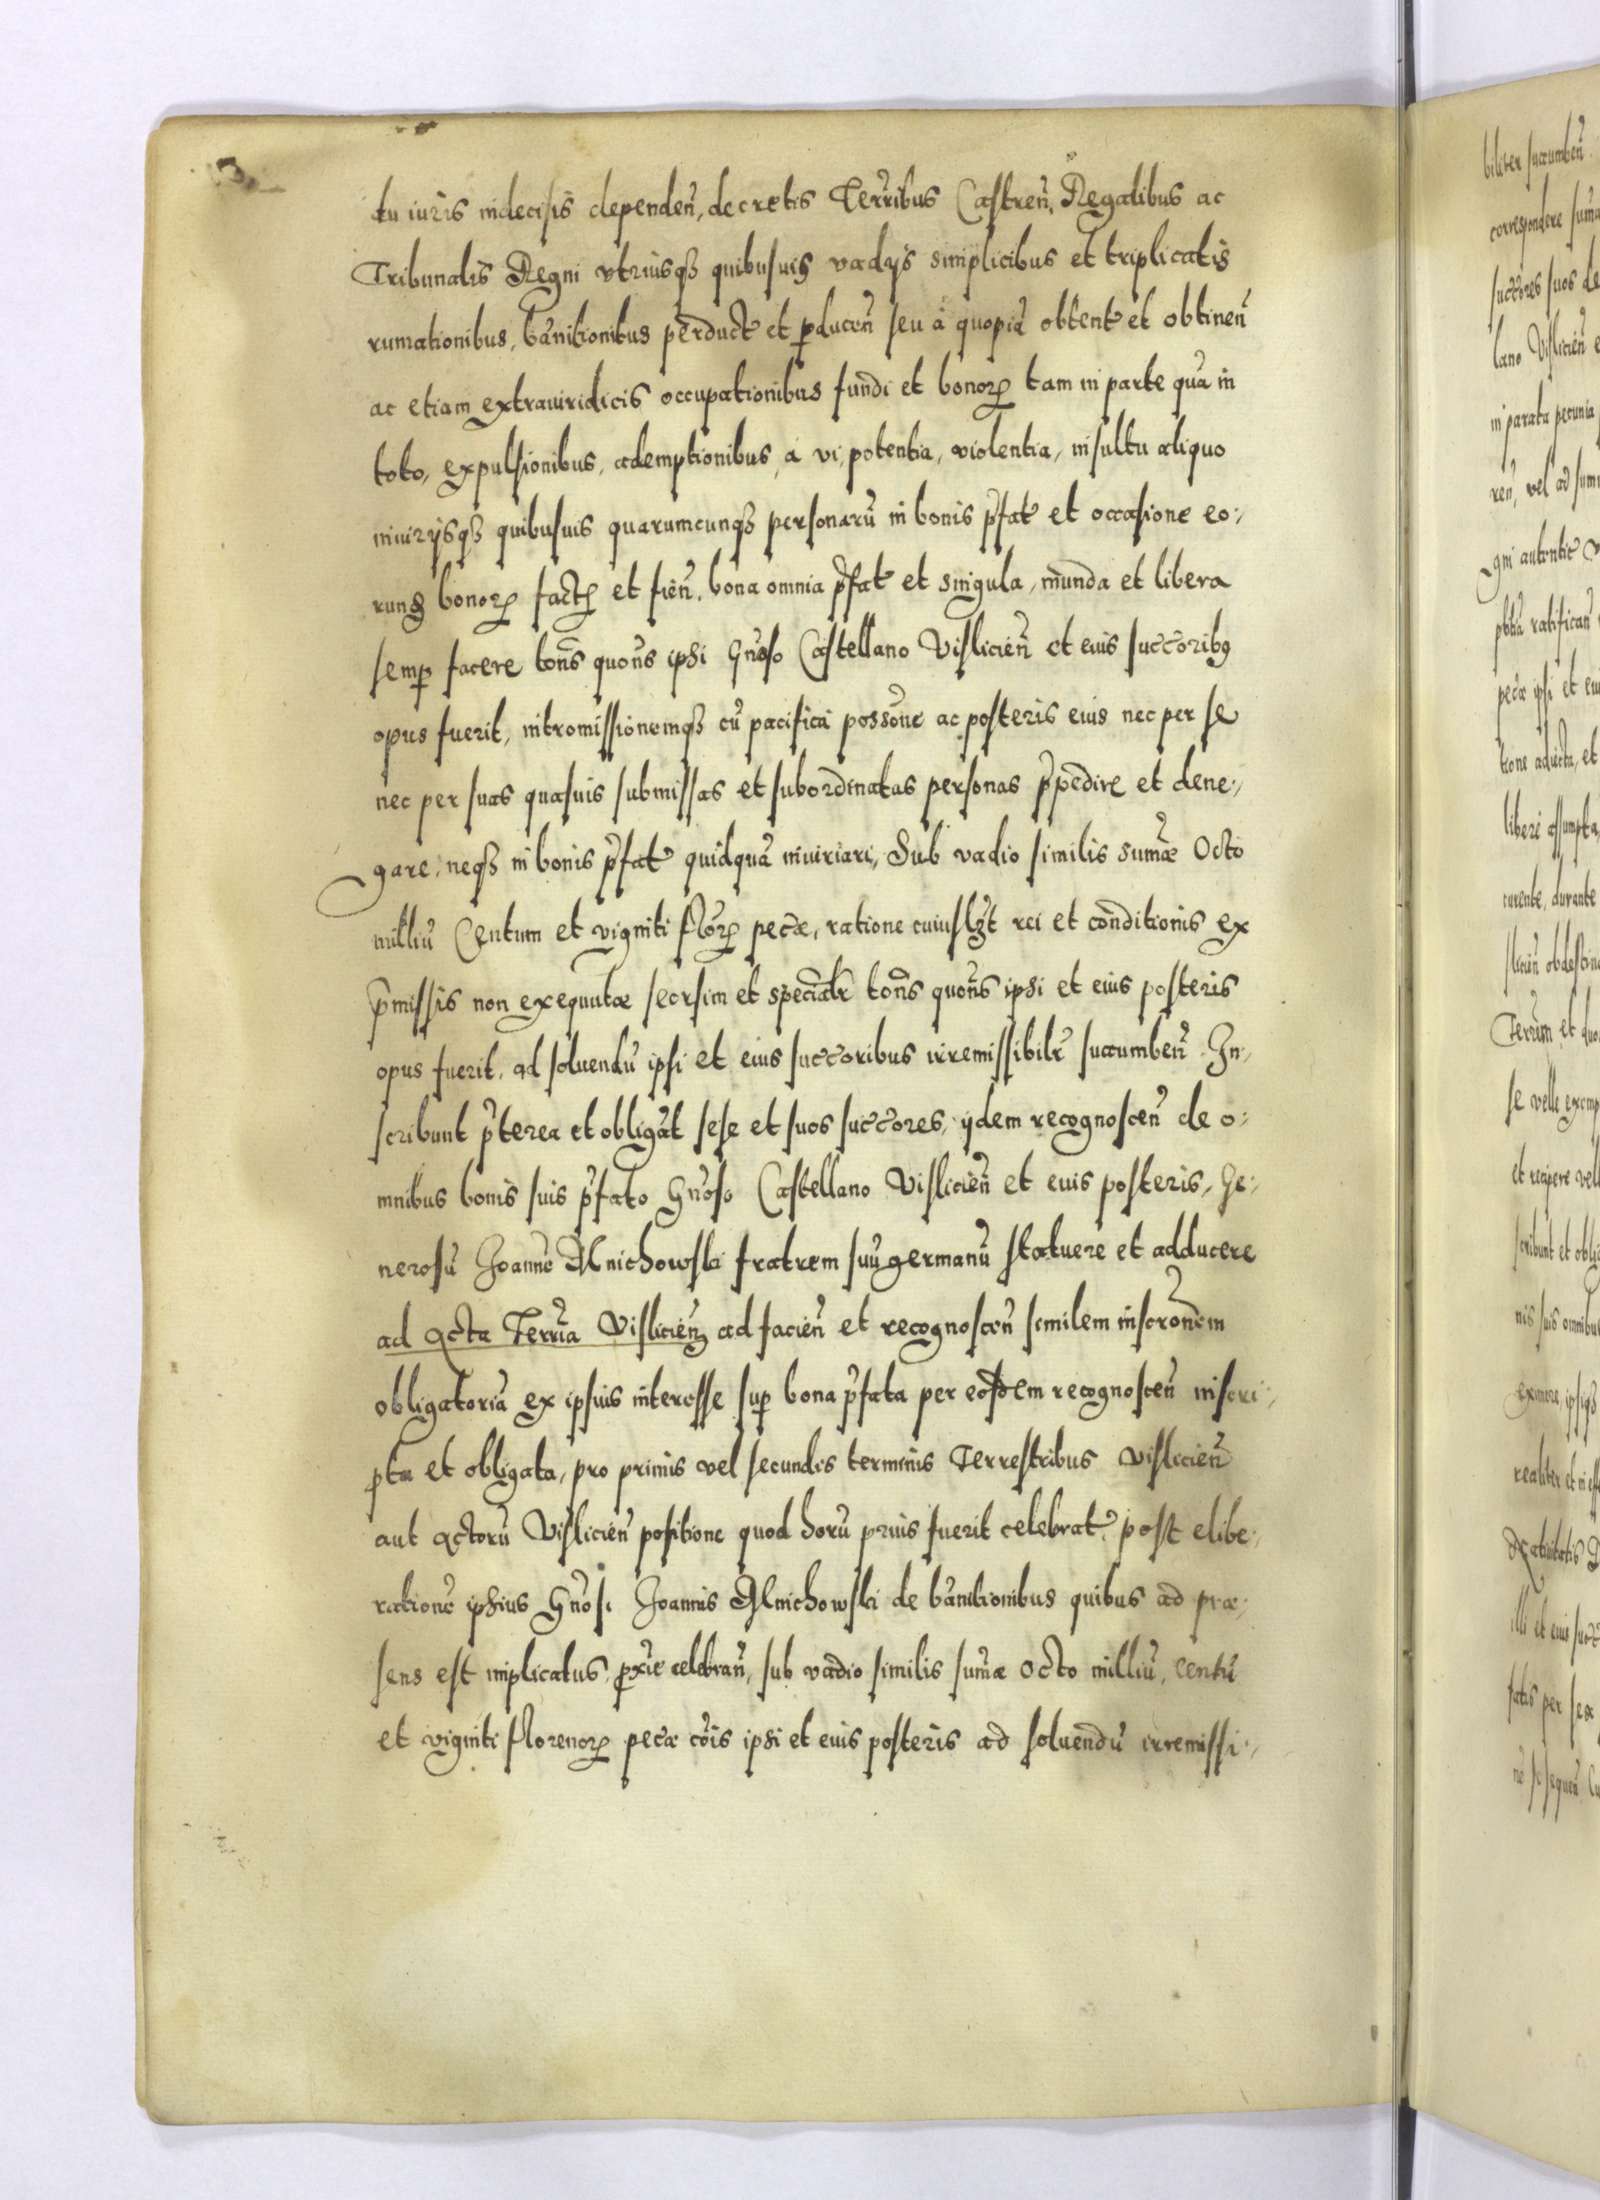 3.
tu iuris indecisis dependeñ, decretis Terribus Castreñ, Regalibus ac
Tribunalis Regni vtriusqȝ quibusuis vadijs simplicibus et triplicatis
rumationibus, bãnitionibus perduct et ꝑduceñ seu à quopiã obtent et obtineñ
ac etiam extraiuridicis occupationibus fundi et bonorꝝ tam in parte quã in
toto, expulsionibus, ademptionibus, a vi, potentia, violentia, insultu aliquo
iniurijsqȝ quibusuis quarumcunqȝ personarũ in bonis p̃fat et occasione eo:,
runꝗ bonorꝝ factꝝ et fieñ, bona omnia p̃fat et singula, munda et libera
semꝑ facere tons quons ipsi Gnoso Castellano Vislicieñ et eius succoribꝰ
opus fuerit, intromissionemqȝ cũ pacifica possõne ac posteris eius nec per se
nec per suas quasuis submissas et subordinatas personas p̃pedire et dene:,
gare, neqȝ in bonis p̃fat quidquã iniuriari, Sub vadio similis sumæ Octo
milliũ Centum et viginti florꝝ pecæ, ratione cuiuslȝt rei et conditionis ex
p̃missis non exequutæ seorsim et specialr tons quons ipsi et eius posteris
opus fuerit, ad soluendũ ipsi et eius succoribus irremissibilr succumbeñ. In:,
scribunt p̃terea et obligãt sese et suos succores, ijdem recognosceñ de o:,
mnibus bonis suis p̃fato Gnoso Castellano Vislicieñ et euis posteris, Ge:,
nerosũ Joannẽ Mnichowski fratrem suũ germanũ statuere et adducere
ad Acta Terria Vislicieñ ad facieñ et recognosceñ similem inscronem
obligatoriã ex ipsius interesse suꝑ bona p̃fata per eosdem recognosceñ inscri:,
pta et obligata, pro primis vel secundis terminis Terrestribus Vislicieñ
aut Actorũ Vislicieñ positione quod horũ prius fuerit celebrat post elibe:,
rationẽ ipsius Gnosi Joannis Mnichowski de bãnitionibus quibus ad præ:,
sens est implicatus, ꝓxie celebrañ, sub vadio similis sumæ Octo milliũ, centũ
et viginti florenorꝝ pecæ cõis ipsi et euis posteris ad soluendũ irremissi:,
biliter succumbeñ
correspondere
succores suos de
lano Vislicieñ
in parata pecunia
reñ, vel ad
gni autentic
ratificañ
pecæ ipsi et
tione adiecta, et
liberi assumpta
durante
Terrum et
se velle
et recipere
scribunt et
nis suis omnibus
eximere, ipsiqȝ
realiter et in
illi et eius
fatis per